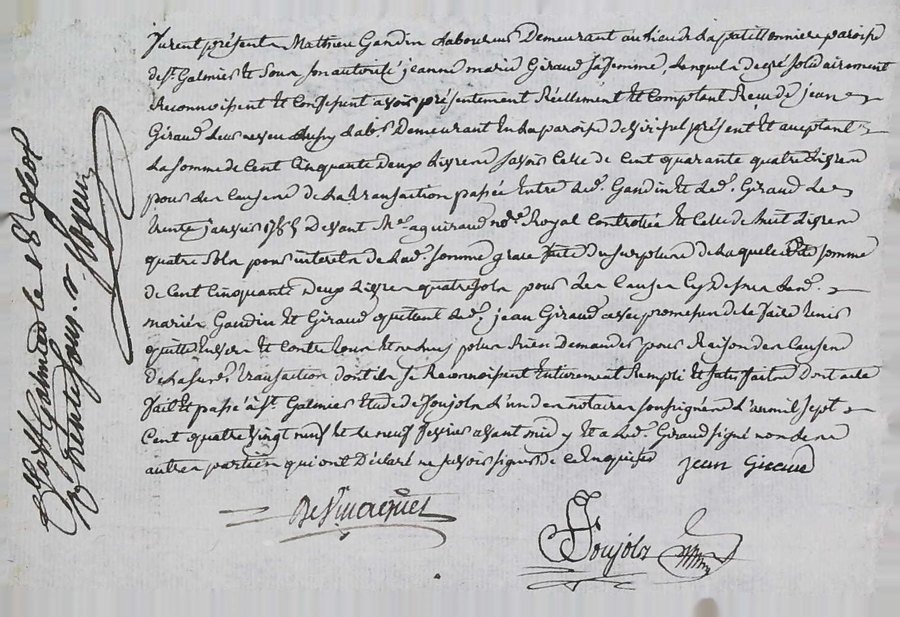 furent présents Mathieu Gandin laboureur Demeurant au lieu de la petitonniere paroisse
de st. Galmier et sous son autorité jeanne marie Giraud sa femme, Lesquels de gré solidairement
Reconnoissent et Confessent avoir présentement Réellement et Comptant Recu de jean
Giraud Leur neveu aussy Labr. Demeurant En la paroisse de present et aceptant
La somme de Cent Cinquante deux Livres savoir Celle de Cent quarante quatre Livres
pour Les Causes de la transaction passée Entre led. Gandin et led. Giraud Le
trente janvier devant Me. aguiraud nore. Royal Controllée et Celle de huit Livres
quatre sols pour interets de lad. somme grace faite du surplus de laquelle somme
de Cent Cinquante deux Livres quatre sols pour Les Causes Cy dessus Lesd.
mariés Gandin et Giraud quitent led. jean Giraud avec promesse de le faire tenir
quitte Envers et Contre tous et ne plus Rien Demander pour Raison des Causes
de la susd. transaction dont ils se Reconnoissent Entierement Rempli et satisfaits Dont acte
fait et passé à st. Galmier Etude de Soujols L'un des notaires soussignés L'an mil sept
Cent quatre vingt neuf et le neuf fevrier avant midy et a Led. Giraud signé non Les
autres parties qui ont Déclaré ne savoir signer de ce Enquises jean Giraud
Soujols
Cllé à st Galmier le